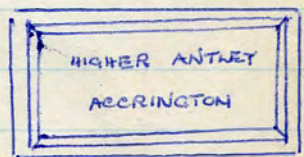 HIGHER ANTLEY
ACCRINGTON